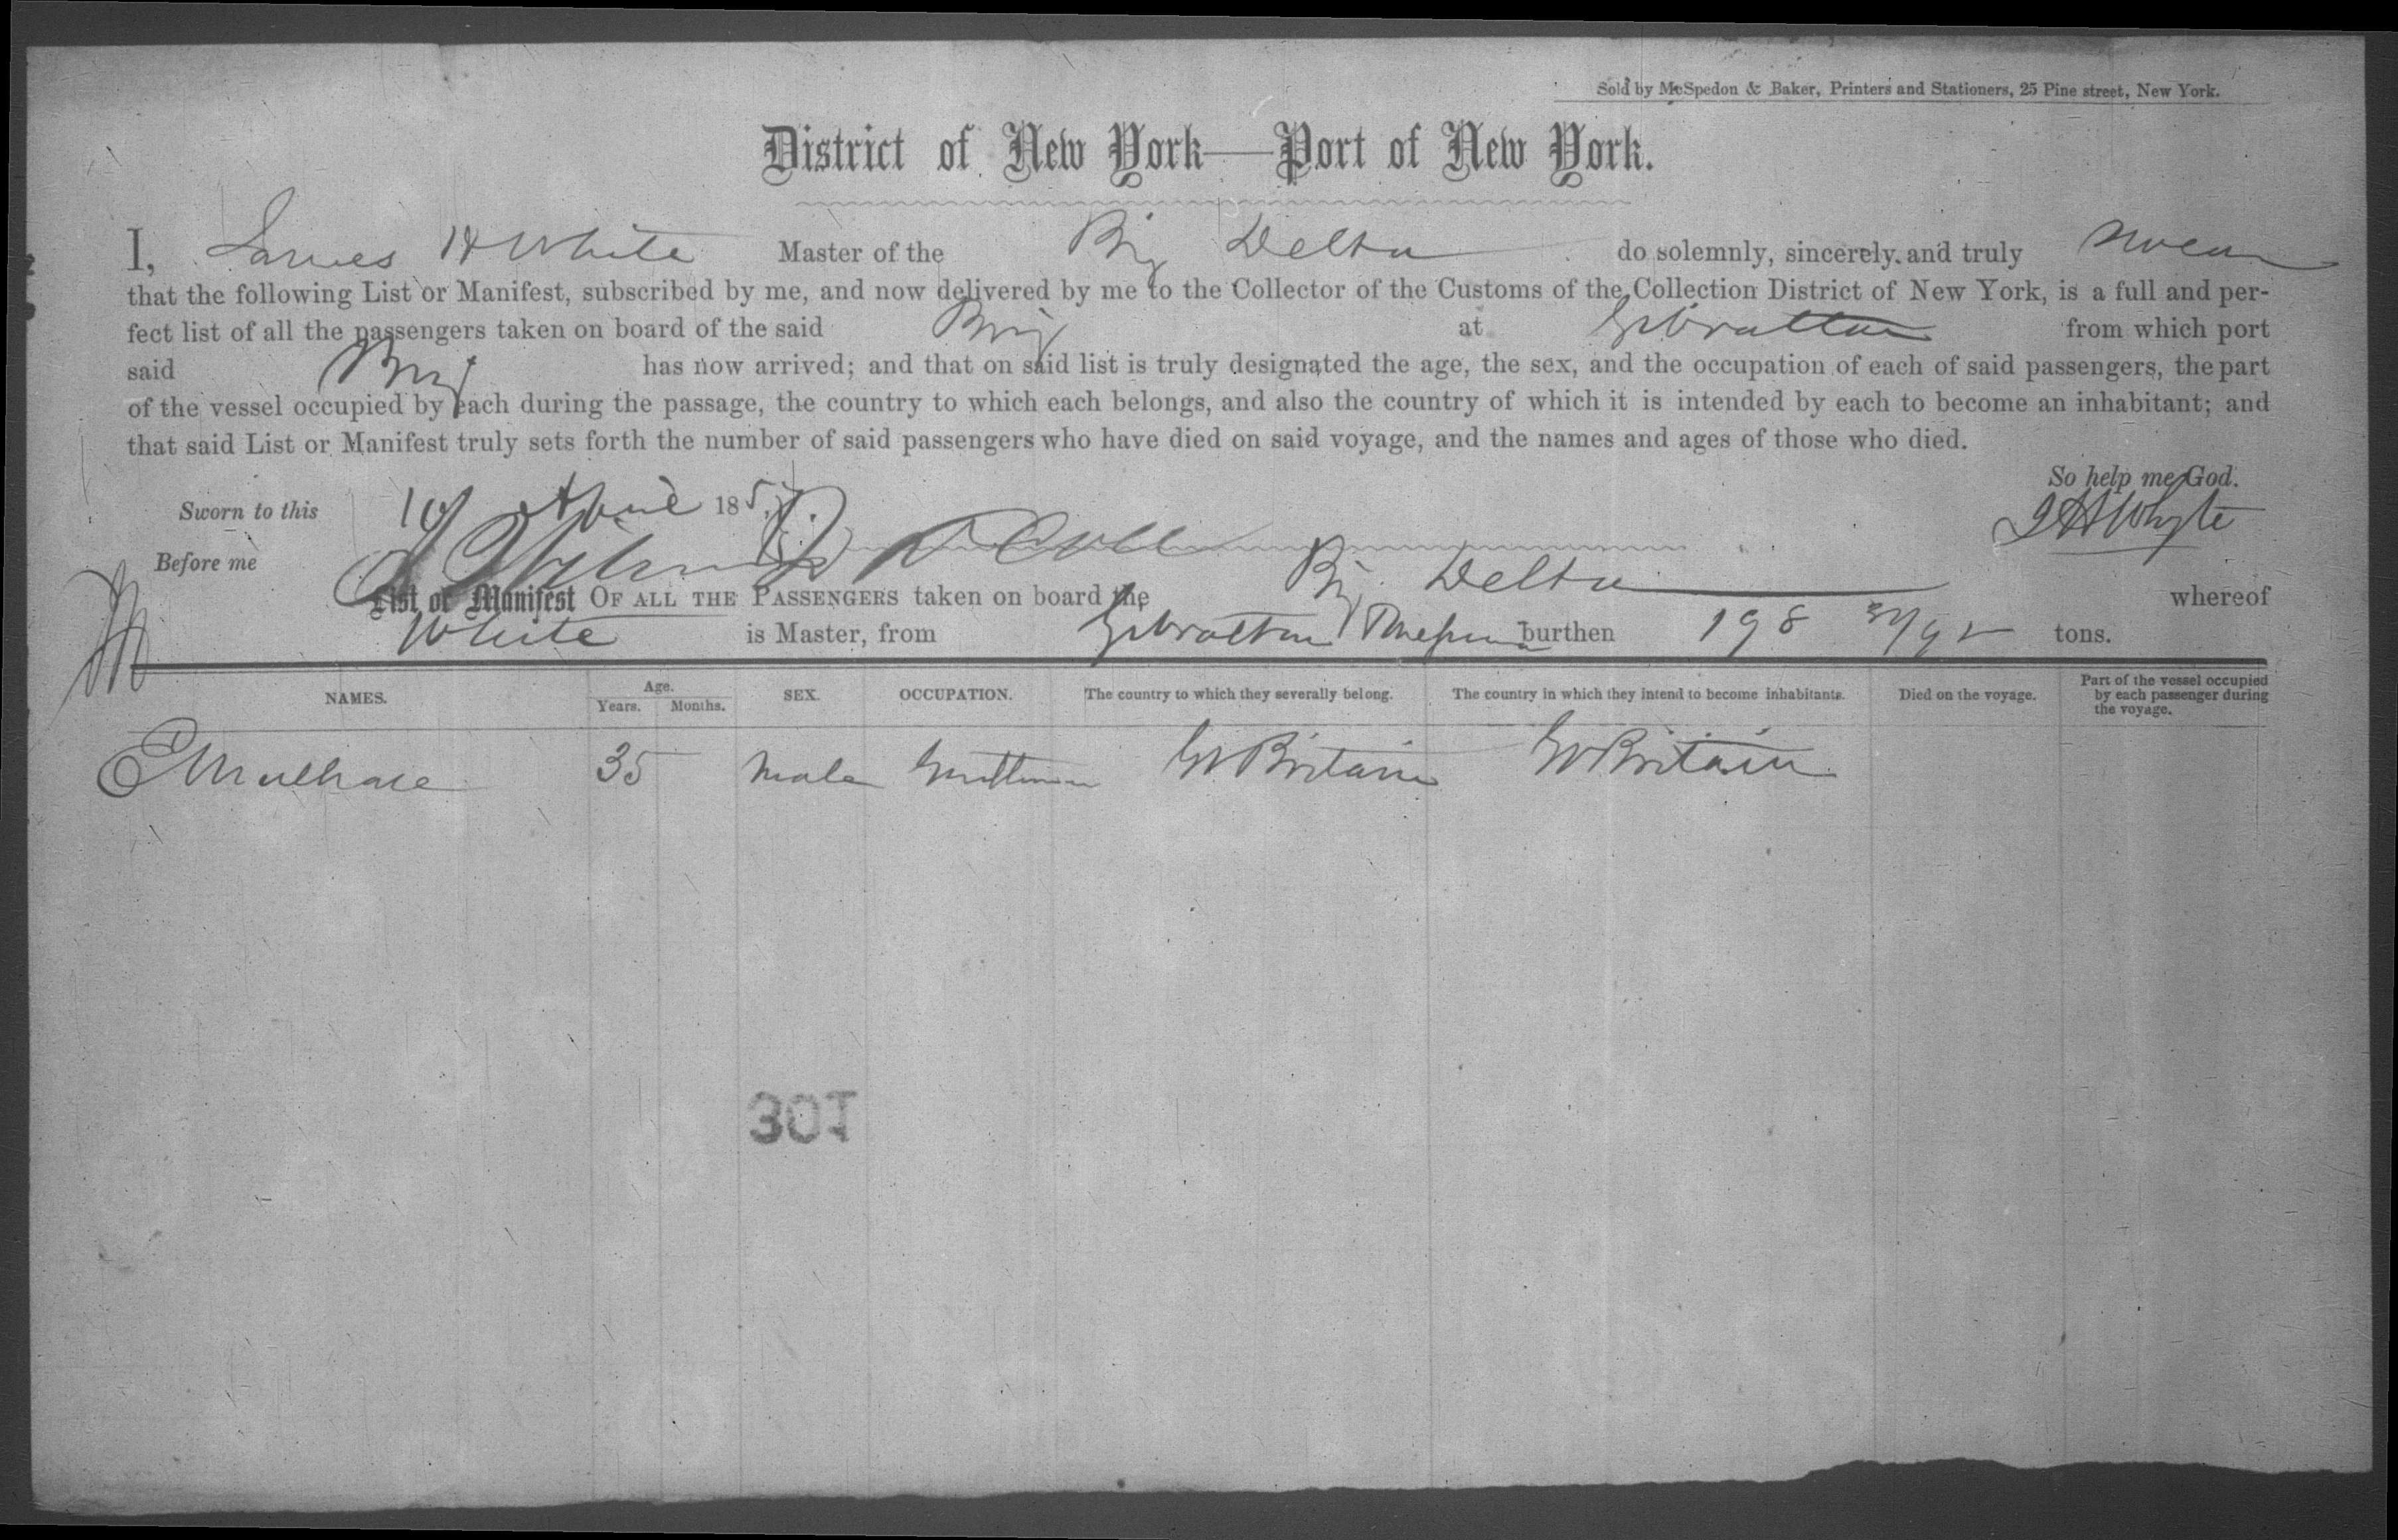 Sold by McSpedon & Baker, Printers and Stationers, 25 Pine street, New York.
District of New York—Port of New York.
I, James H White Master of the Brig Delta do solemnly, sincerely and truly swear
that the following List or Manifest, subscribed by me, and now delivered by me to the Collector of the Customs of the Collection District of New York, is a full and per-
fect list of all the passengers taken on board of the said Brig at Gibraltar from which port
said Brig has now arrived; and that on said list is truly designated the age, the sex, and the occupation of each of said passengers, the part
of the vessel occupied by each during the passage, the country to which each belongs, and also the country of which it is intended by each to become an inhabitant; and
that said List or Manifest truly sets forth the number of said passengers who have died on said voyage, and the names and ages of those who died.
So help me God.
Sworn to this April 185
J H Whyte
Before me
List or Manifest OF ALL THE PASSENGERS taken on board the Brig Delta whereof
White is Master, from Gibraltar burthen 198 tons.
NAMES. Age. Years. Months. SEX. OCCUPATION. The country to which they severally belong. The country in which they intend to become inhabitants. Died on the voyage. Part of the vessel occupied by each passenger during the voyage.
35 Male Gentleman Gt Britain Gt Britain
301